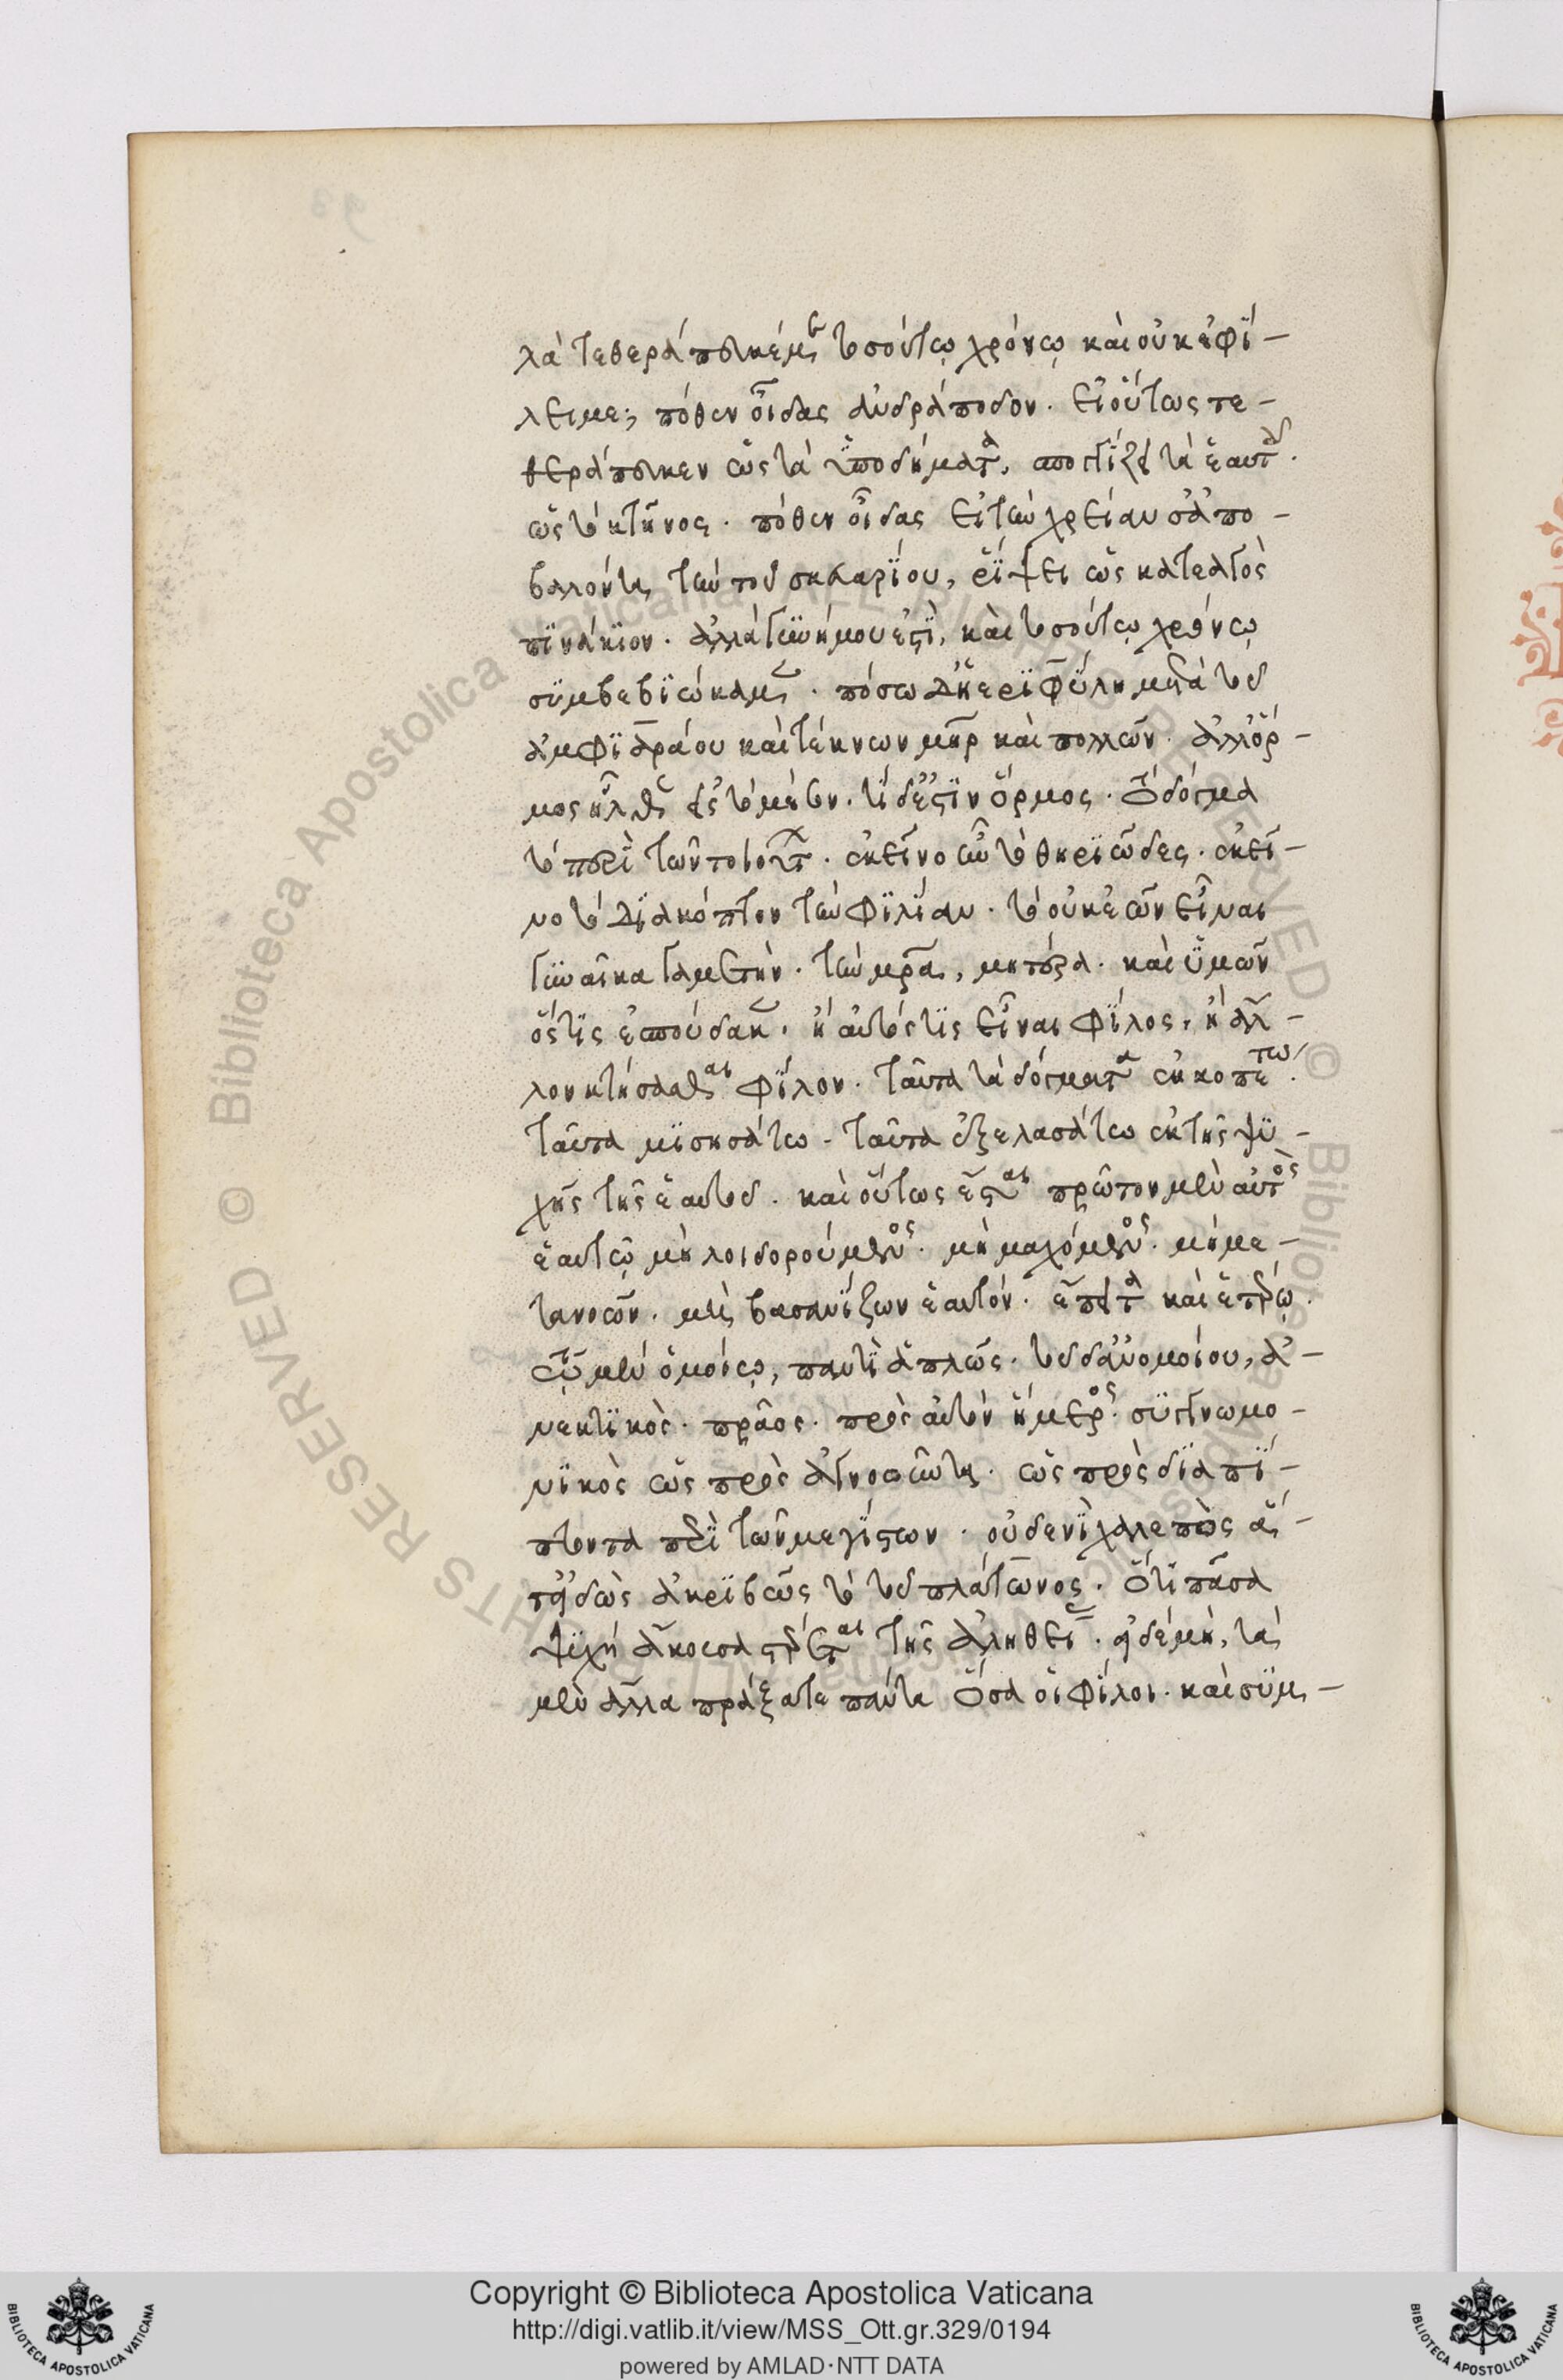 λὰ τεθεράπευκέ με τοσούτῳ χρόνῳ καὶ οὐκ ἐφί-
λει με; πόθεν οἶδας ἀνδράποδον. εἰ οὕτως τε-
θεράπευκεν ὡς τὰ ὑποδήματα, σπογγίζει τὰ ἑαυτοῦ.
ὡς τὸ κτῆνος. πόθεν οἶδας εἰ τὴν χρείαν σ' ἀπο-
βαλόντα τὴν τοῦ σκευαρίου, ῥίψει ὡς κατεαγὸς
πινάκιον. ἀλλὰ γυνή μου ἐστὶ, καὶ τοσούτῳ χρόνῳ
συμβεβιώκαμεν. πόσω δ' ἡ ἐριφύλη μετὰ τοῦ
ἀμφιαράου καὶ τέκνων μήτηρ καὶ πολλῶν. ἀλλ' ὅρ-
μος ἦλθεν εἰς τὸ μέσον. τί δέ ἐστιν ὅρμος. τὸ δόγμα
τὸ περὶ τῶν τοιούτων. ἐκεῖνο ἦν τὸ θηριῶδες. ἐκεῖ-
νο τὸ διακόπτον τὴν φιλίαν. τὸ οὐκ ἐῶν εἶναι
γυναῖκα γαμετήν. τὴν μητέρα, μητέρα. καὶ ὑμῶν
ὅστις ἐσπούδακεν. ἢ αὐτός τις εἶναι φίλος, ἢ ἄλ-
λον κτήσασθαι φίλον. ταῦτα τὰ δόγματα ἐκκοπτέτω.
ταῦτα μισησάτω. ταῦτα ἐξελασάτω ἐκ τῆς ψυ-
χῆς τῆς ἑαυτοῦ. καὶ οὕτως ἔσται πρῶτον μὲν αὐτὸς
ἑαυτῷ μὴ λοιδορούμενος. μὴ μαχόμενος. μὴ με-
τανοῶν. μὴ βασανίζων ἑαυτόν. ἔπειτα καὶ ἑτέρῳ.
τῷ μὲν ὁμοίῳ, παντὶ ἁπλῶς. τοῦ δ' ἀνομοίου, ἀ-
νεκτικὸς. πρᾶος. πρὸς αὐτὸν ἥμερος. συγγνωμο-
νικὸς ὡς πρὸς ἀγνοοῦντα. ὡς πρὸς διαπί-
πτοντα περὶ τῶν μεγίστων. οὐδενὶ χαλεπὸς ἅ-
τ' εἰδὼς ἀκριβῶς τὸ τοῦ πλάτωνος. ὅτι πᾶσα
ψυχὴ ἄκουσα στέρεται τῆς ἀληθείας. εἰ δὲ μὴ, τὰ
μὲν ἄλλα πράξετε πάντα ὅσα οἱ φίλοι. καὶ συμ-
Copyright © Biblioteca Apostolica Vaticana
http://digi.vatlib.it/view/MSS_Ott.gr.329/0194
powered by AMLAD·NTT DATA